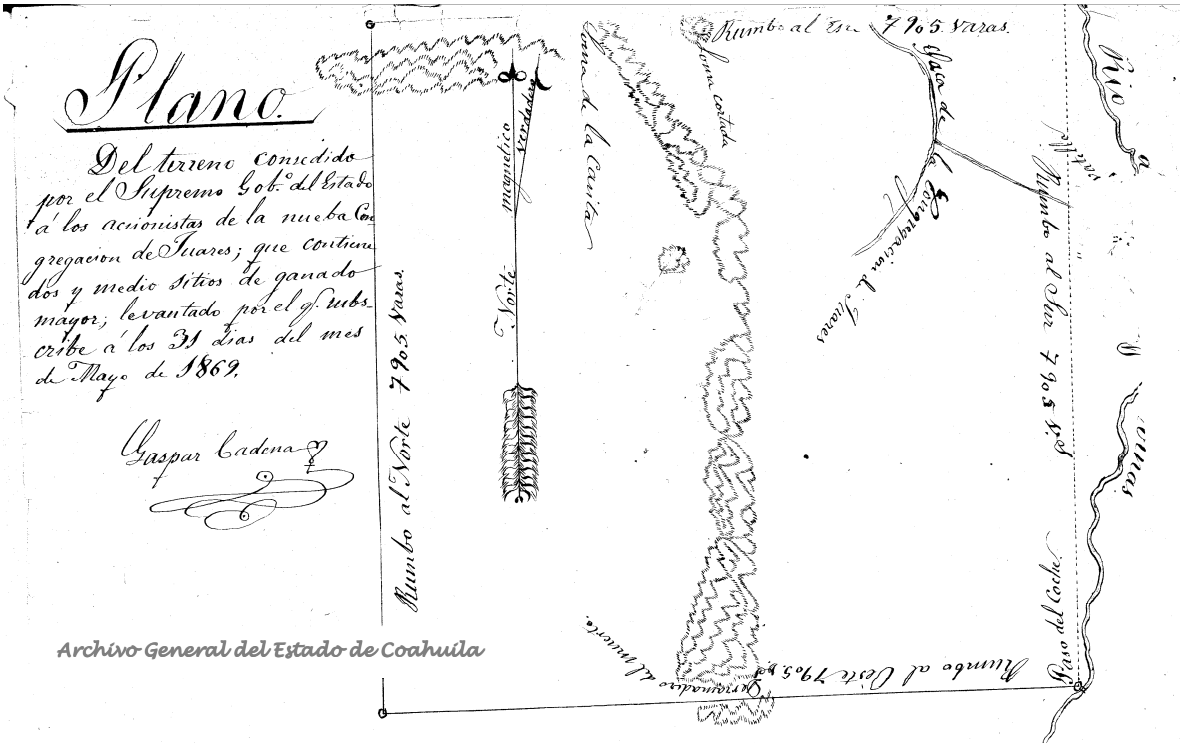 Plano.
Del terreno consedido
por el Supremo Gob.º del Estado
á los accionistas de la nueba Con-
gregacion de Juares; que contiene
dos y medio sitios de ganado
mayor; levantado por el q.e subs-
cribe á los 31 dias del mes
de Mayo de 1869.
Gaspar Cadena
Rumbo al Norte 7905. Varas.
Norte magnetico
verdadero
Loma de la Caxita
Loma cortada
Rumbo al Este 7905. Varas.
Saca de la Congregacion de Juares
Rumbo al Sur 7905 V.s
Paso del Coche.
Rumbo al Oeste 7905. v.s
Derramadero del muerto.
Rio
Archivo General del Estado de Coahuila